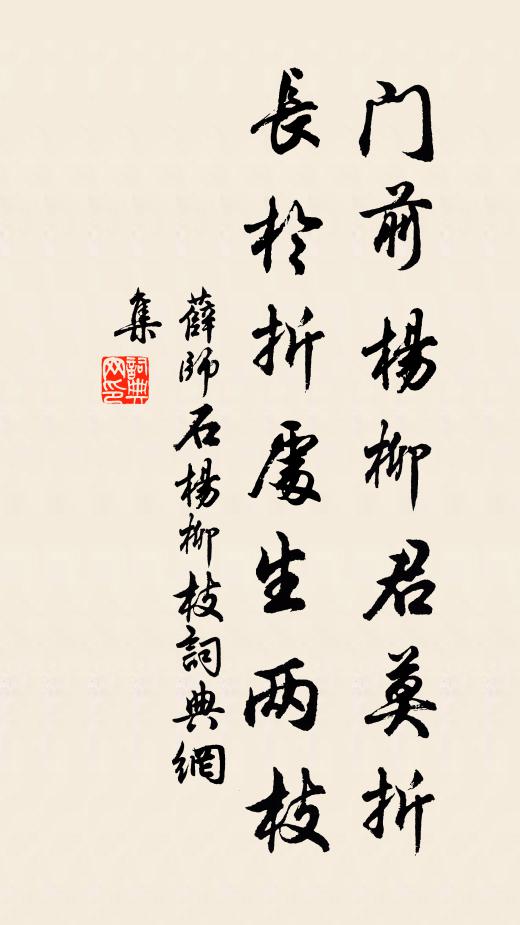 門前楊柳君莫折
長於折處生兩枝
薛師石楊柳枝詞典網
集
詞典
网印